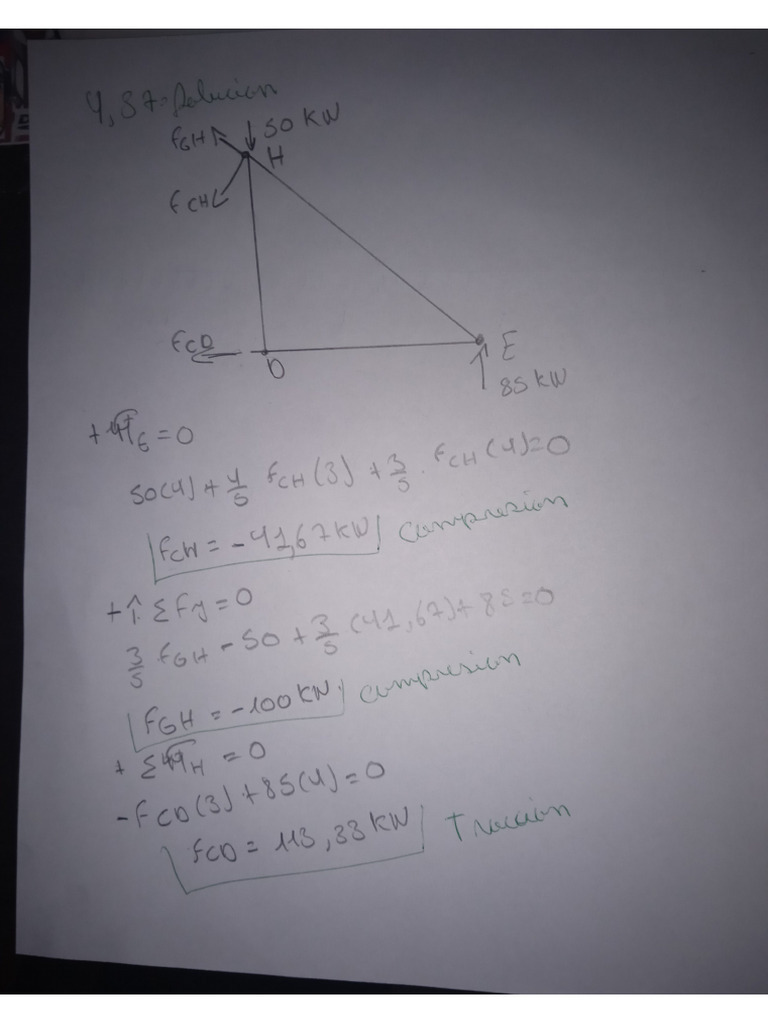 4,37-Solucion
50 KN
FGH
H
FCH
FCD
D
E
85 KN
+ ΣME = 0
50(4) + 4/5 FCH (3) + 3/5 · FCH (4) = 0
FCH = -41,67 KN compresion
+↑ ΣFy = 0
3/5 FGH - 50 + 3/5 (41,67) + 85 = 0
FGH = -100 KN compresion
+ ΣMH = 0
-FCD(3) + 85(4) = 0
FCD = 113,33 KN Traccion